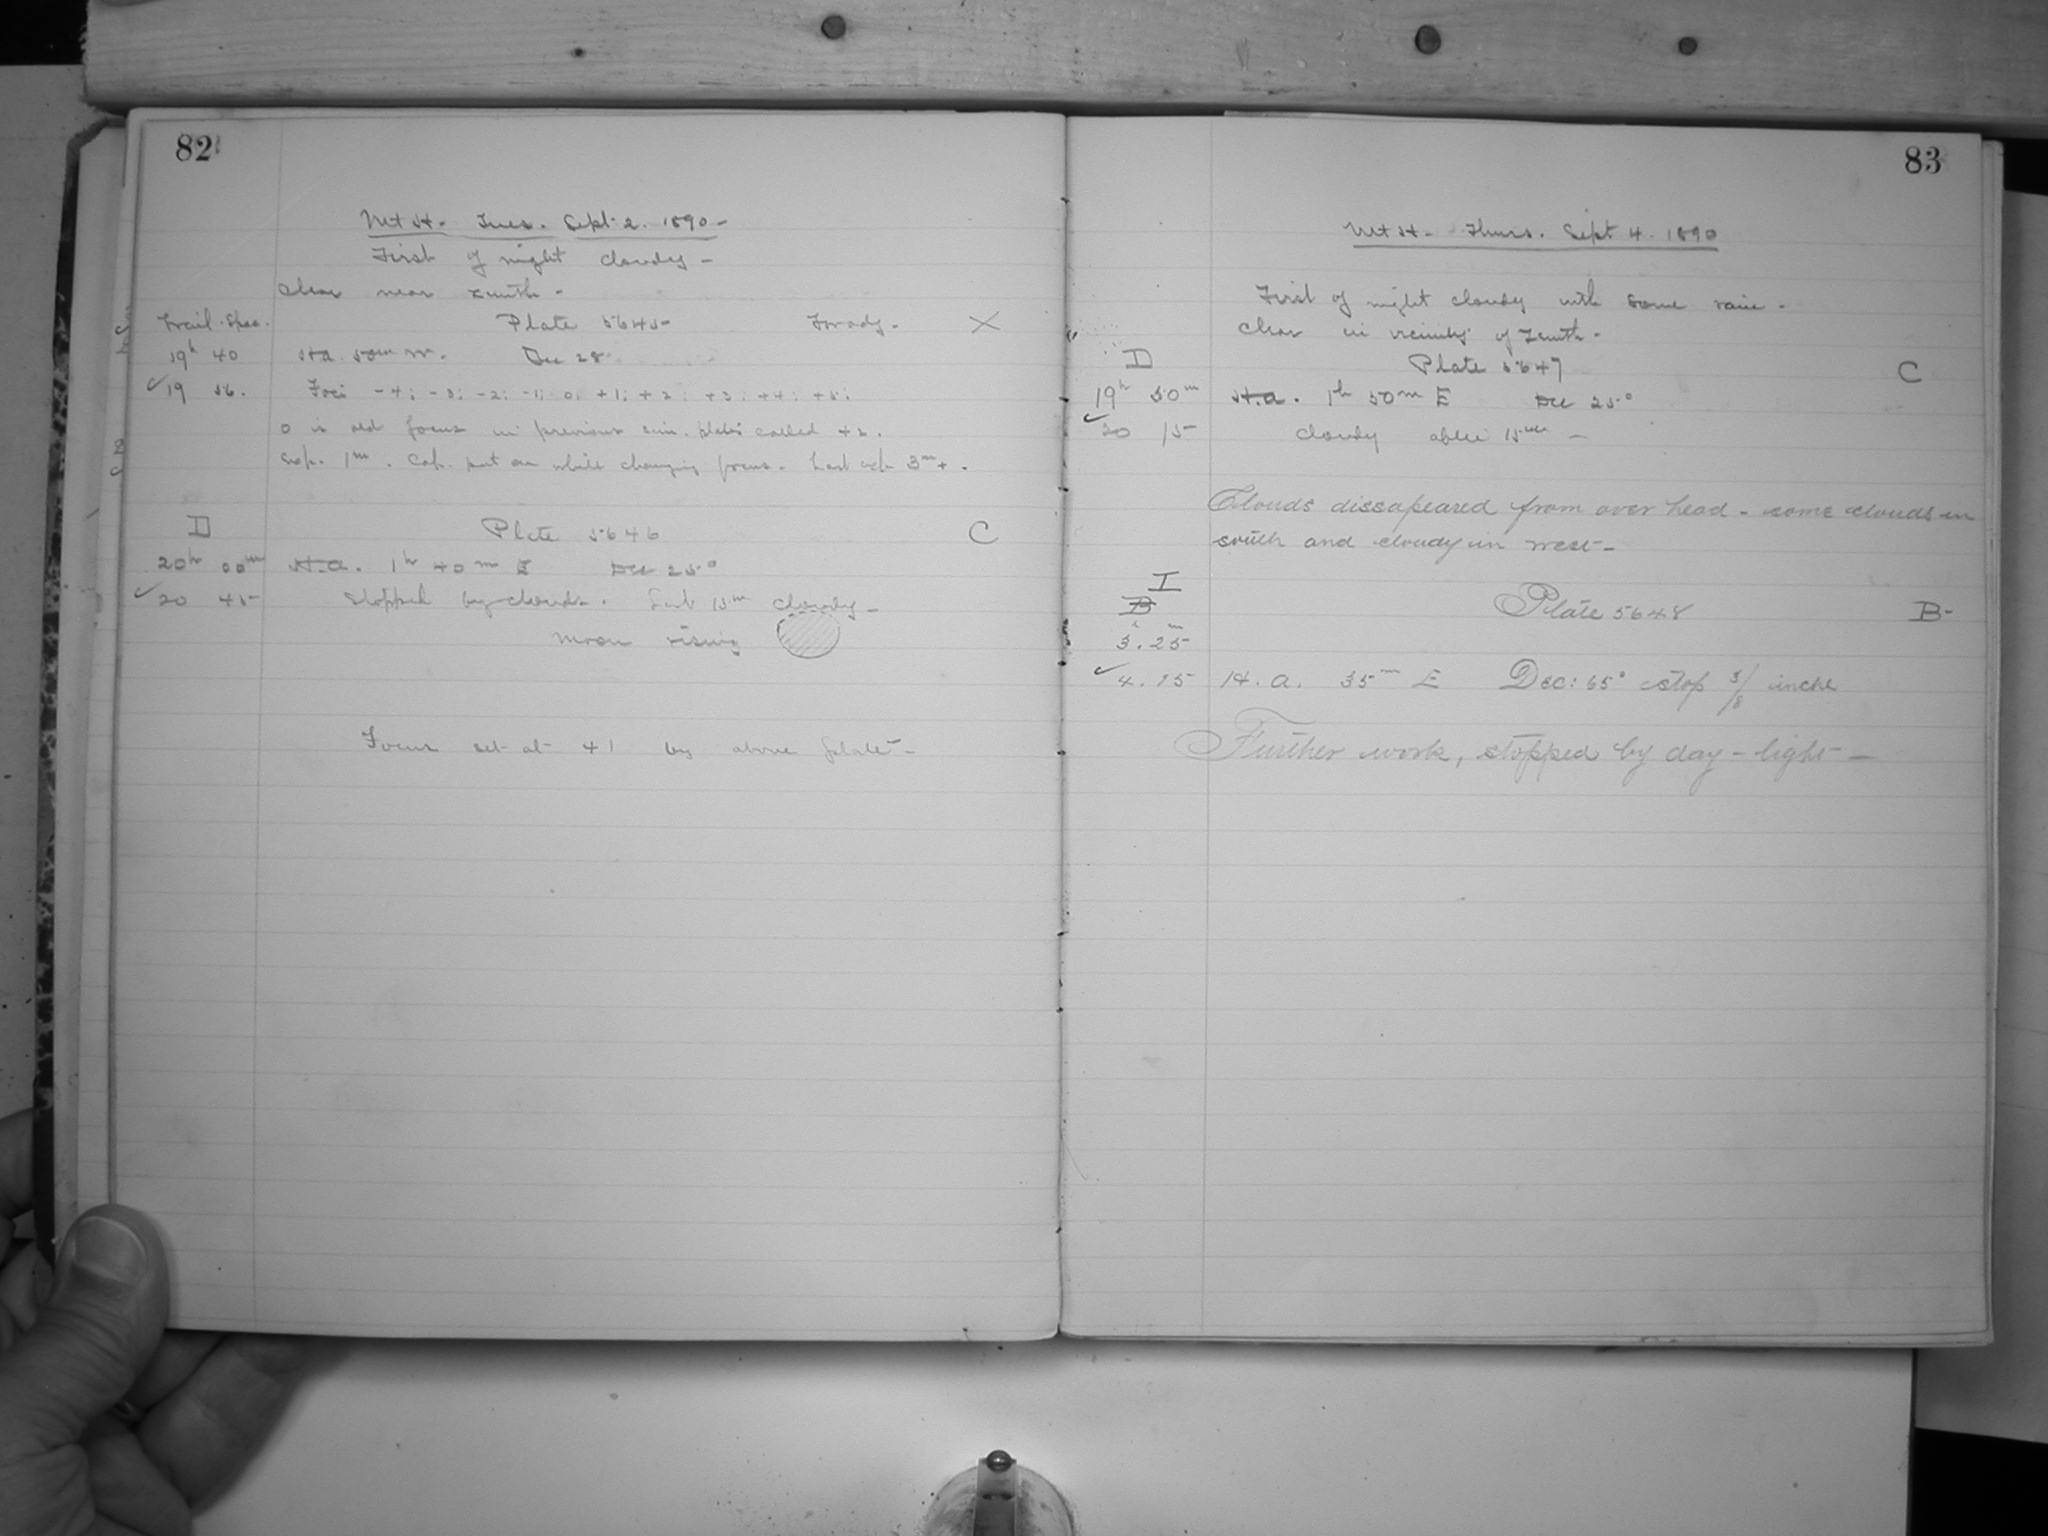 82
Mt H. Tues. Sept. 2. 1890 -
First of night cloudy -
Clear near zenith -
Trail. Spec. Plate 5645 X
19h 40 H.a. 50m W. Dec 28
✓ 19 56. Foci - 4; - 3; - 2; - 1; 0; + 1; + 2; + 3; + 4; + 5;
0 is old focus in previous plates called + 2.
Exp. 1m. Cap. put on while changing focus. Last exp. 3m +.
D Plate 5646 C
20h 00m H.a. 1h 40m E Dec 25°
✓ 20 45 Stopped by clouds. Last 15m cloudy -
Moon rising
Focus set at + 1 by above plate -
83
Mt H - Thurs. Sept 4. 1890
First of night cloudy with some rain -
Clear in vicinity of zenith -
D Plate 5647 C
19h 50m H.a. 1h 50m E Dec 25°
✓ 20 15 cloudy after 15m -
Clouds dissapeared from over head - some clouds in
south and cloudy in west -
I
B Plate 5648 B-
3h. 25m
✓ 4. 15 H. a. 35m E Dec: 65° stop 3/8 inche
Further work, stopped by day - light -